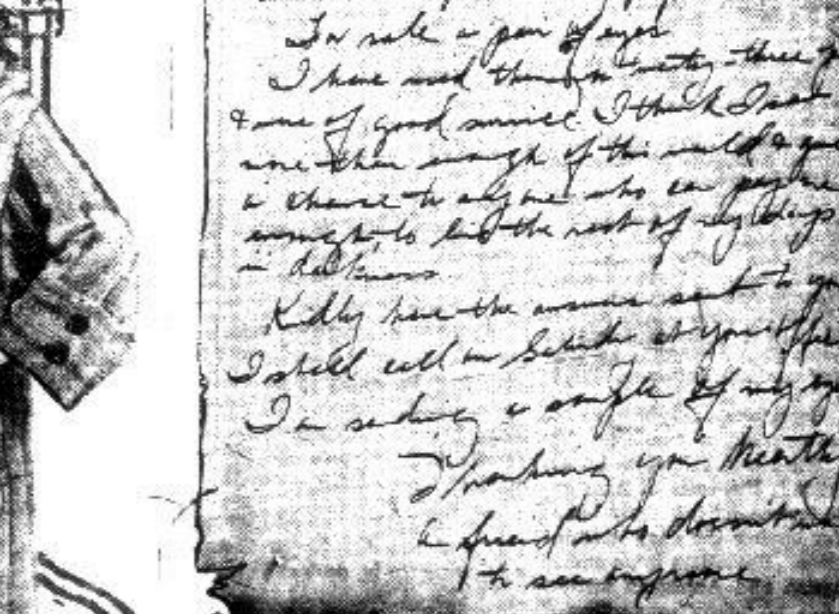 For sale a pair of eyes
I have used them for twenty-three
& one of good service I think I saw
more than enough of this world &
a chance to anyone who can pay me
enough to live the rest of my days
in darkness
Kidly have the answers sent to
I shall call on Saturday at your
I am sending a sample of my
Thanking you
a friend who doesn't
to see anymore